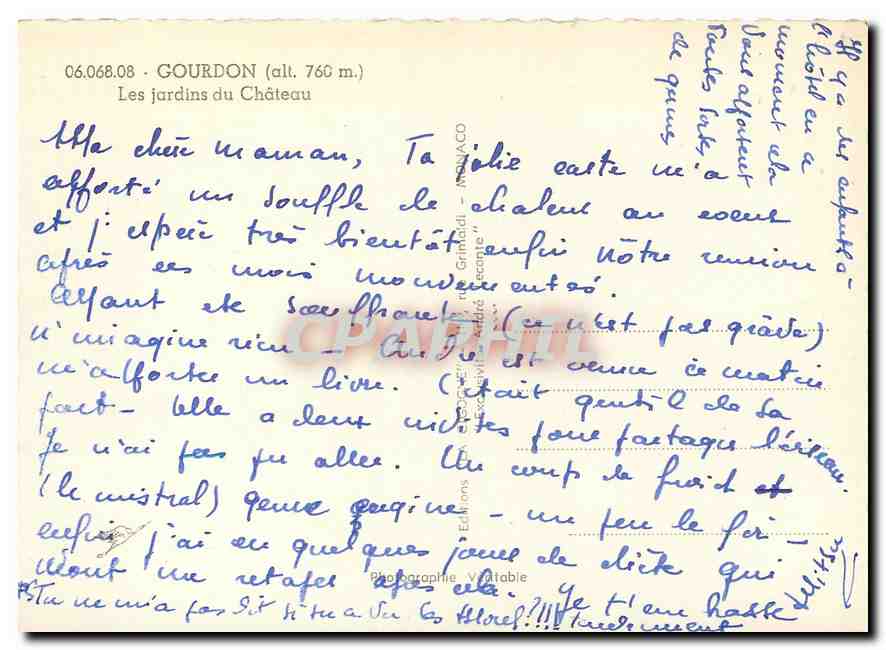 06.068.08 - GOURDON (alt. 760 m.)
Les jardins du Château
Ma chère maman, Ta jolie carte m'a
apporté un souffle de chaleur au coeur
et j'espère très bientôt enfin nôtre reunion
après ces mois mouvementés.
Ayant ete souffrante (ce n'est pas grâve)
n'imagine rien - Andrée est venue ce matin
m'apporter un livre. C'était gentil de sa
part - Elle a deux invités pour partager
Je n'ai pas pu aller. Un coup de froid et
(le mistral) genre angine - un peu le foi -
enfin j'ai eu quelques jours de diète qui
m'ont me retaper après cela. Je t'embrasse
tendrement
PS Tu ne m'a pas dit si tu a vu les ?!!!
Il y a des enfants à
l'hôtel en ce
moment cela
vous apportent
toutes sortes
de
Editions "LA CIGOGNE" rue Grimaldi - MONACO
"Exclusivité André Leconte"
Photographie Véritable
CPAPHIL